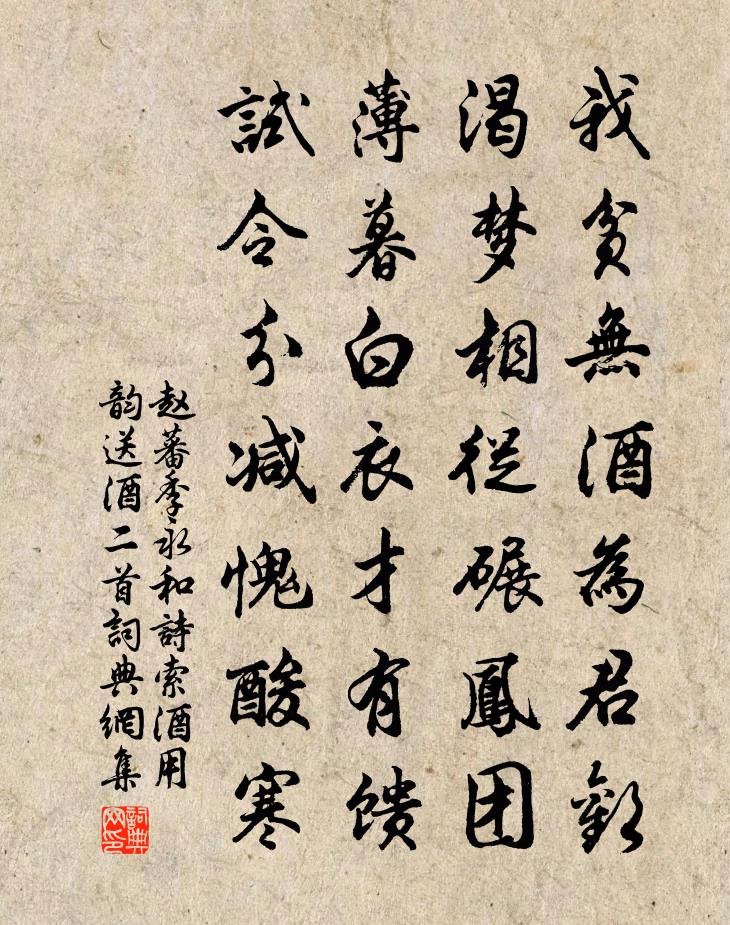 我貧無酒為君歡
渴梦相從碾鳳团
薄暮白衣才有馈
試令分减愧酸寒
赵蕃季永和詩索酒用
韵送酒二首詞典網集
詞典网印